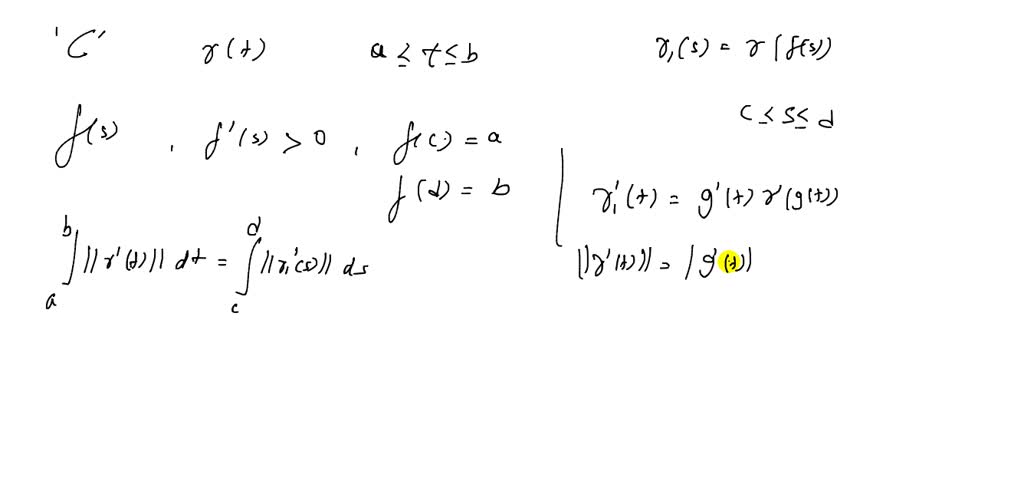 'C' r(t) a ≤ t ≤ b r₁(s) = r(f(s))
c ≤ s ≤ d
f(s) , f'(s) > 0 , f(c) = a
f(d) = b
r₁'(t) = g'(t) r'(g(t))
∫ₐᵇ ||r'(t)|| dt = ∫꜀ᵈ ||r₁'(s)|| ds
||r'(t)|| = |g'(t)|